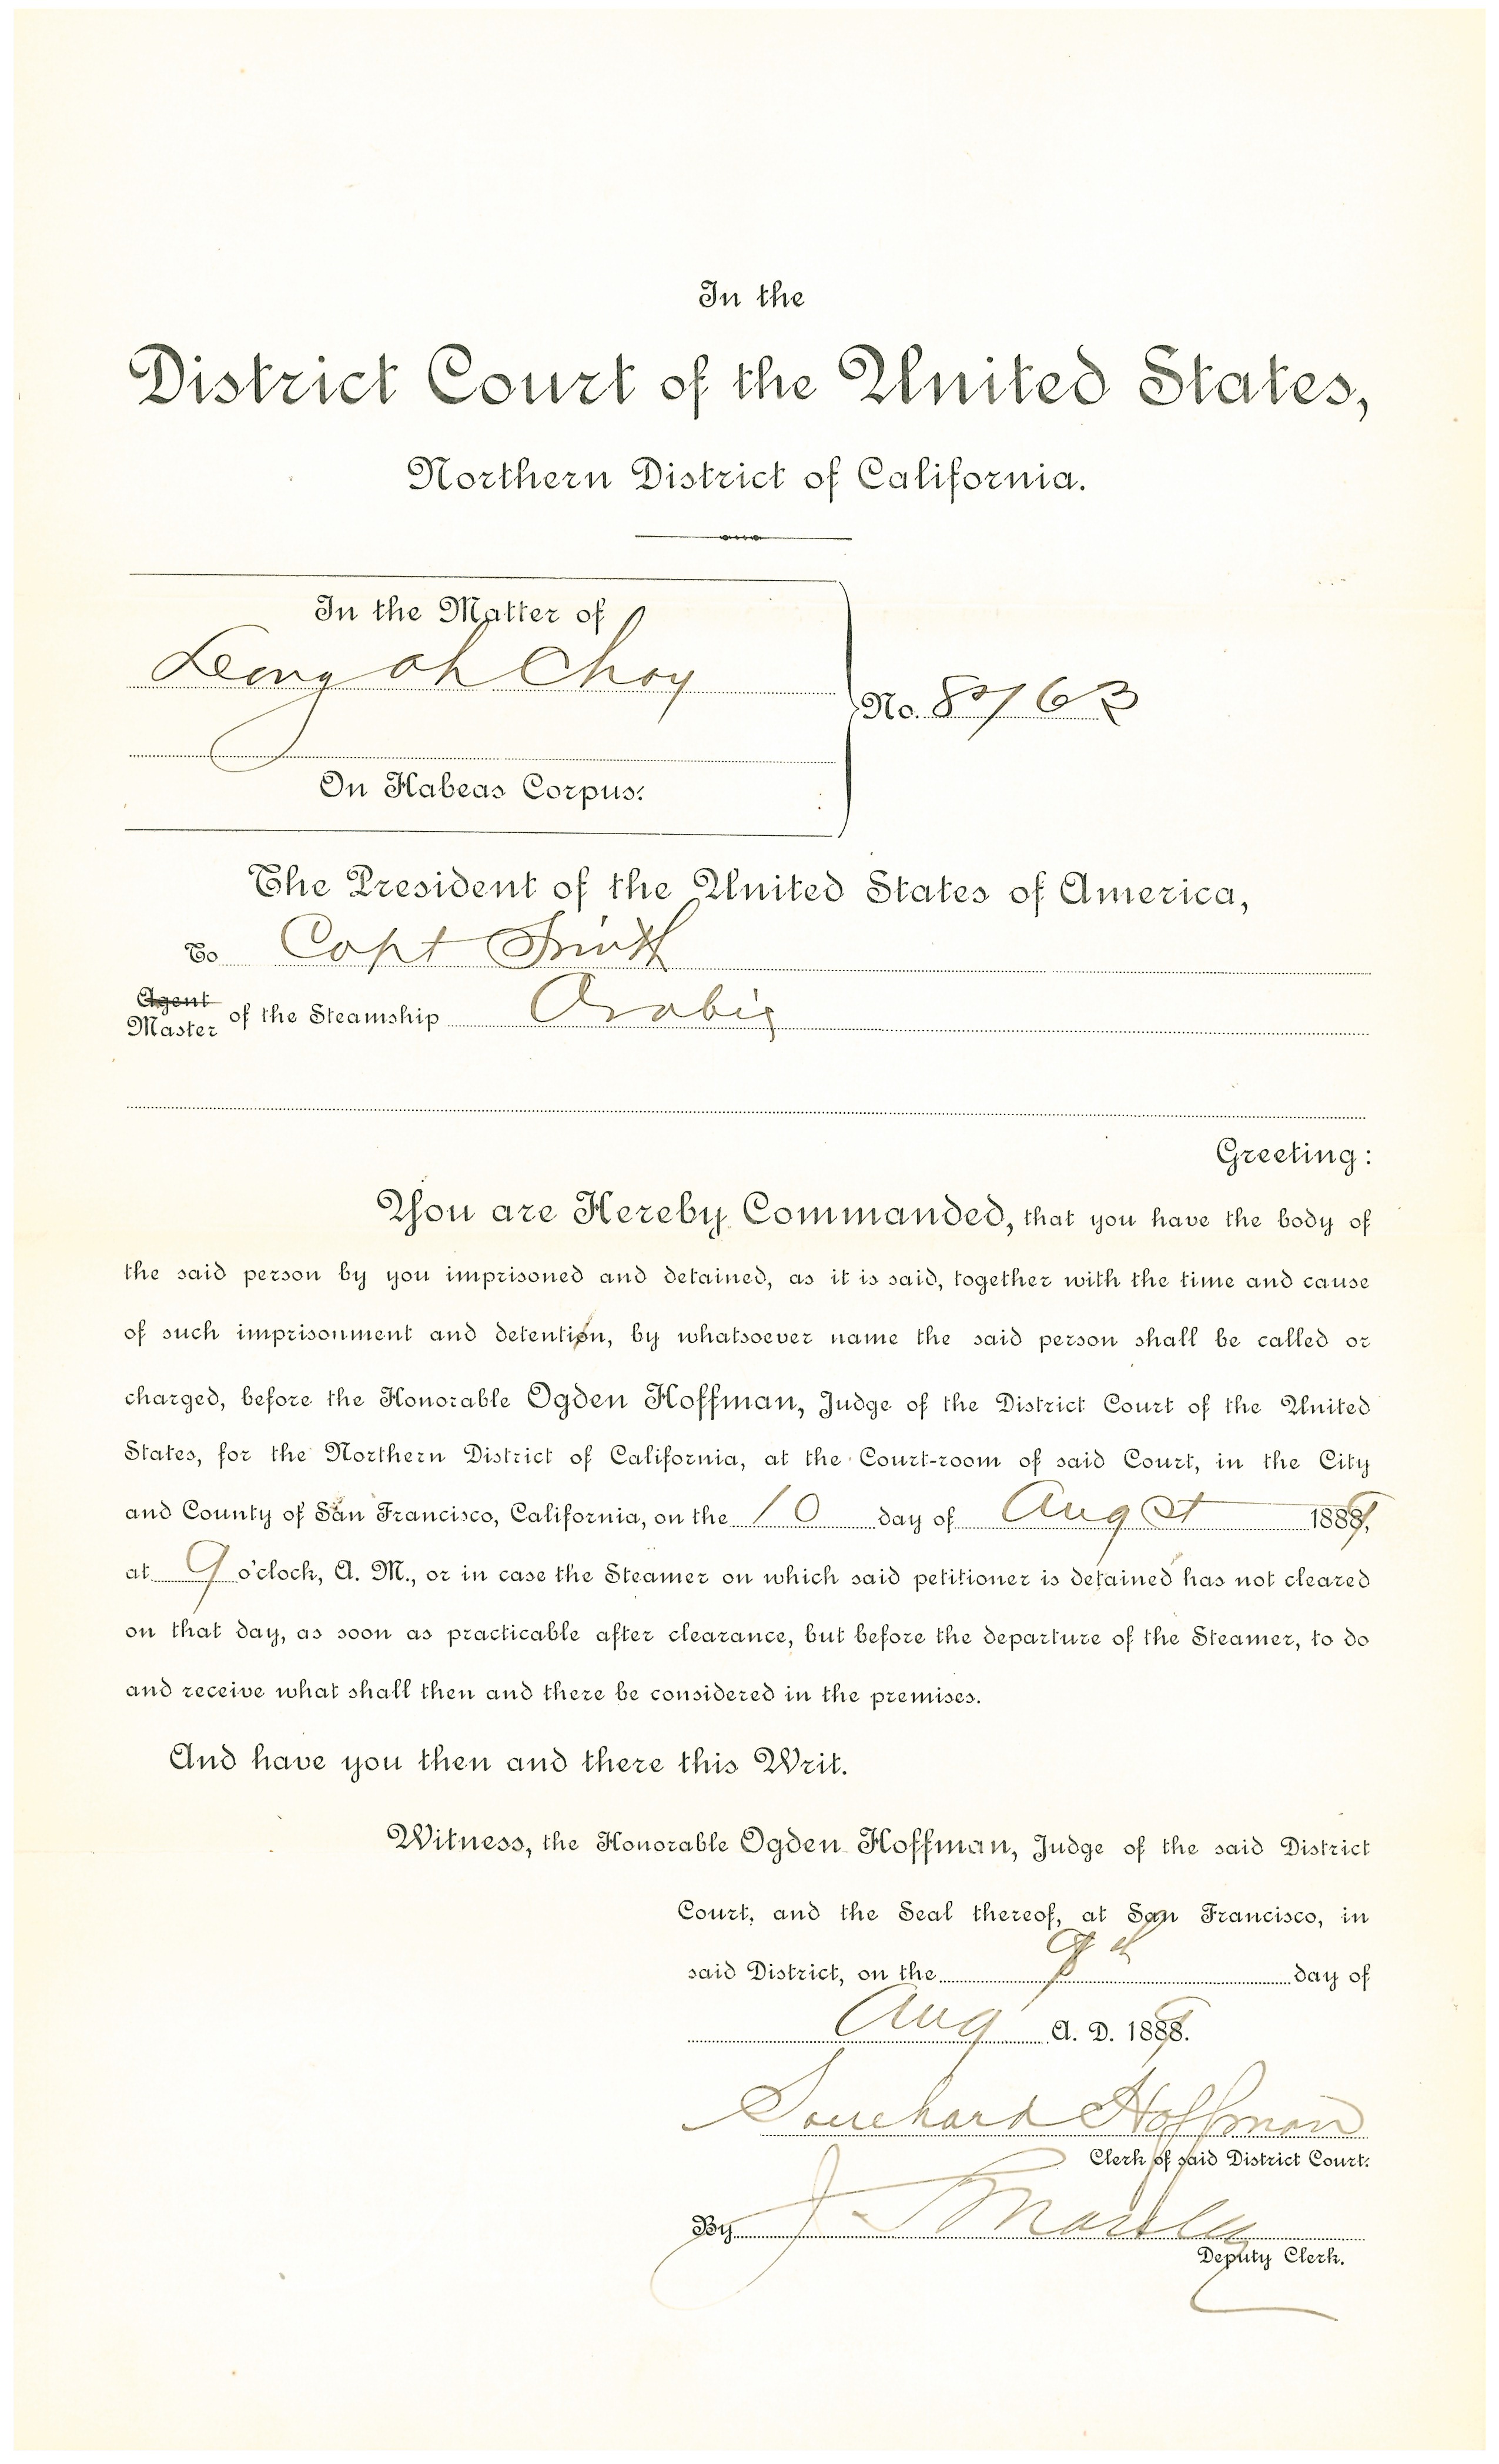 In the
District Court of the United States,
Northern District of California.
In the Matter of
Leong Ah Choy
No.
On Habeas Corpus.
The President of the United States of America,
To Capt Smith
Agent
Master of the Steamship Arabic
Greeting:
You are Hereby Commanded, that you have the body of
the said person by you imprisoned and detained, as it is said, together with the time and cause
of such imprisonment and detention, by whatsoever name the said person shall be called or
charged, before the Honorable Ogden Hoffman, Judge of the District Court of the United
States, for the Northern District of California, at the Court-room of said Court, in the City
and County of San Francisco, California, on the 10 day of August 1889,
at 9 o'clock, A. M., or in case the Steamer on which said petitioner is detained has not cleared
on that day, as soon as practicable after clearance, but before the departure of the Steamer, to do
and receive what shall then and there be considered in the premises.
And have you then and there this Writ.
Witness, the Honorable Ogden Hoffman, Judge of the said District
Court, and the Seal thereof, at San Francisco, in
said District, on the day of
Aug A. D. 1889.
Southard Hoffman
Clerk of said District Court.
By
Deputy Clerk.